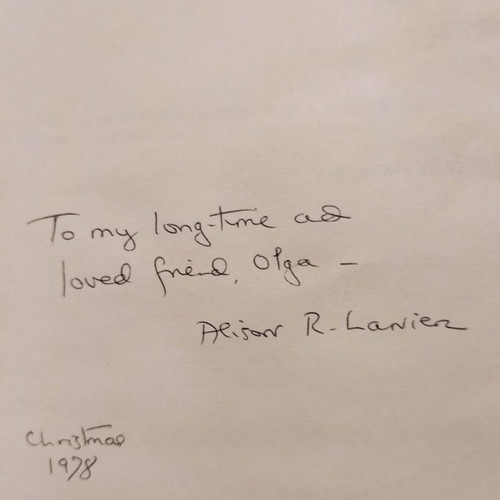 To my long-time and
loved friend, Olga –
Alison R. Lanier
Christmas
1978